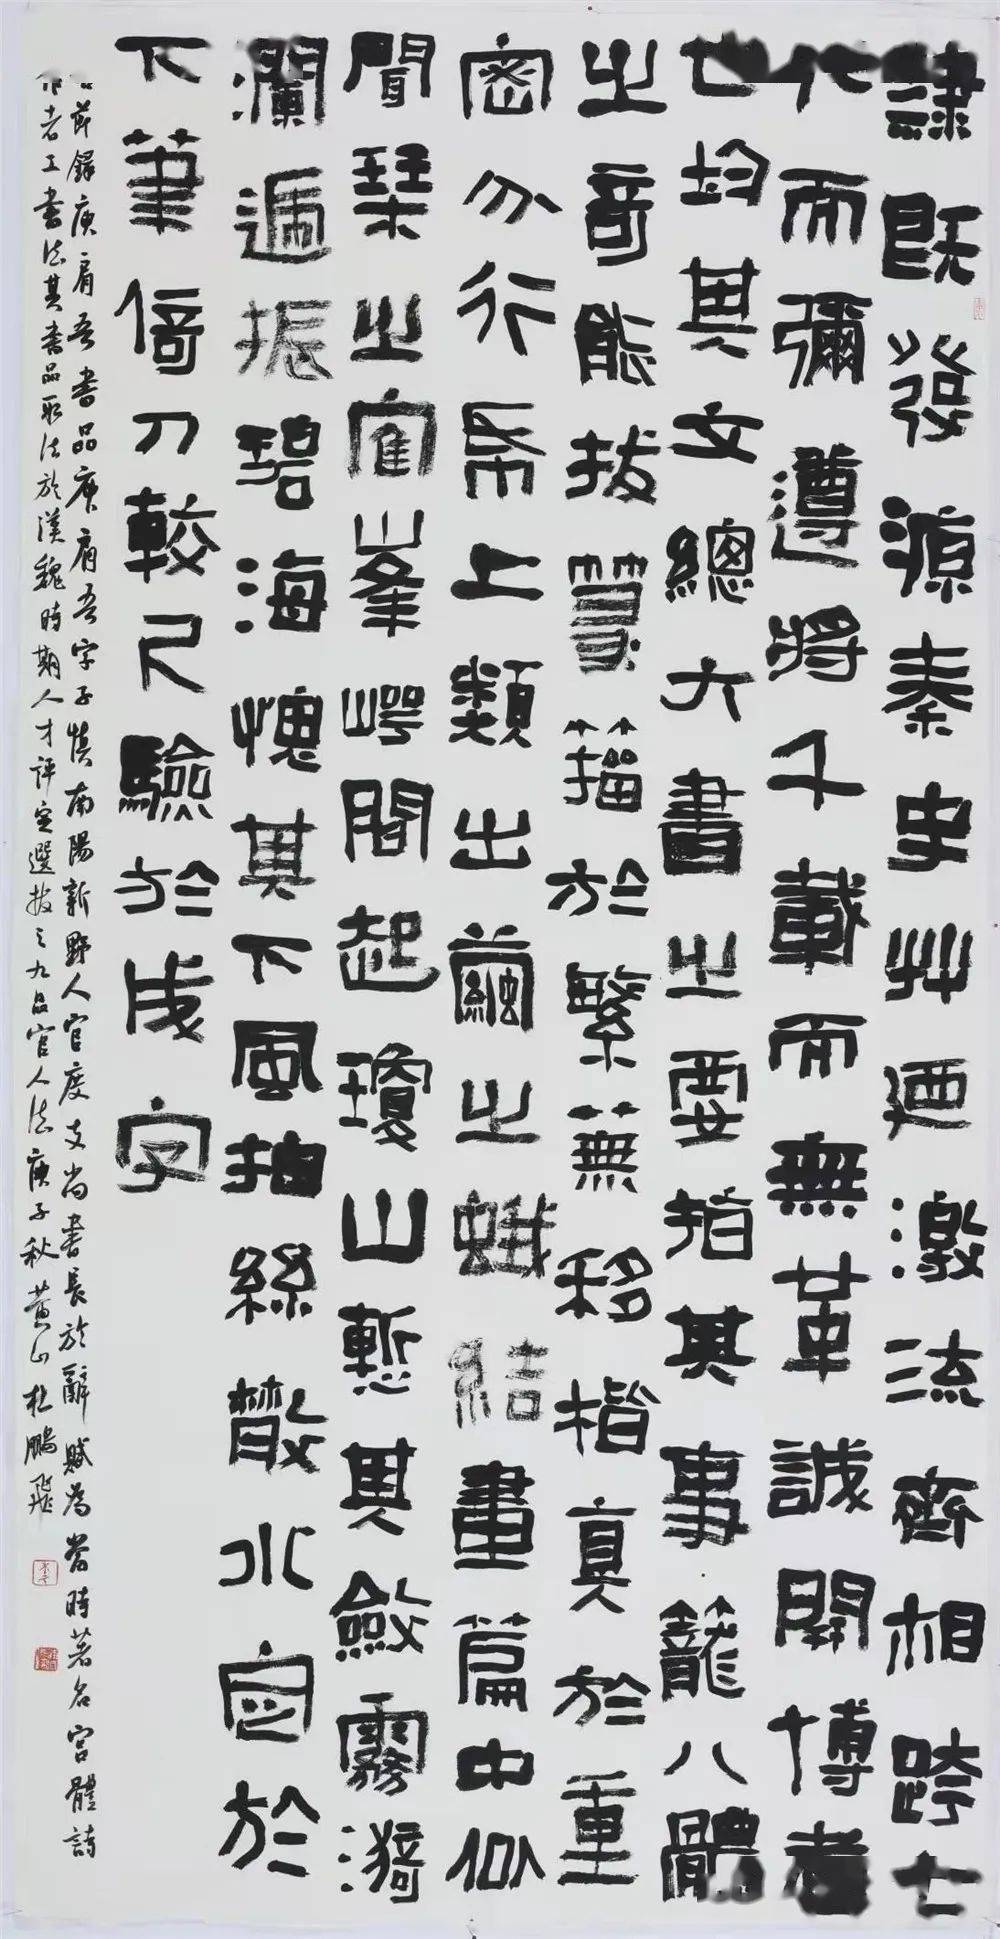 隸既發源秦史艸廼激流齊相跨七
代而彌遵將千載而無革誠開博者
也均其文總六書之要指其事籠八體
之奇能拔篆籀於繁蕪移楷真於重
密分行帋上類出繭之蛾結畫篇中似
聞琹之隺峯崿間起瓊山慙其斂霧漪
瀾遞振碧海愧其下風抽絲散水定於
下筆倚刀較尺驗於成字
節錄庾肩吾書品庾肩吾字子慎南陽新野人官度支尚書長於辭賦為當時著名宮體詩
者工書法其書品取法於漢魏時期人才評定選拔之九品官人法庚子秋黄山杜鵬飛